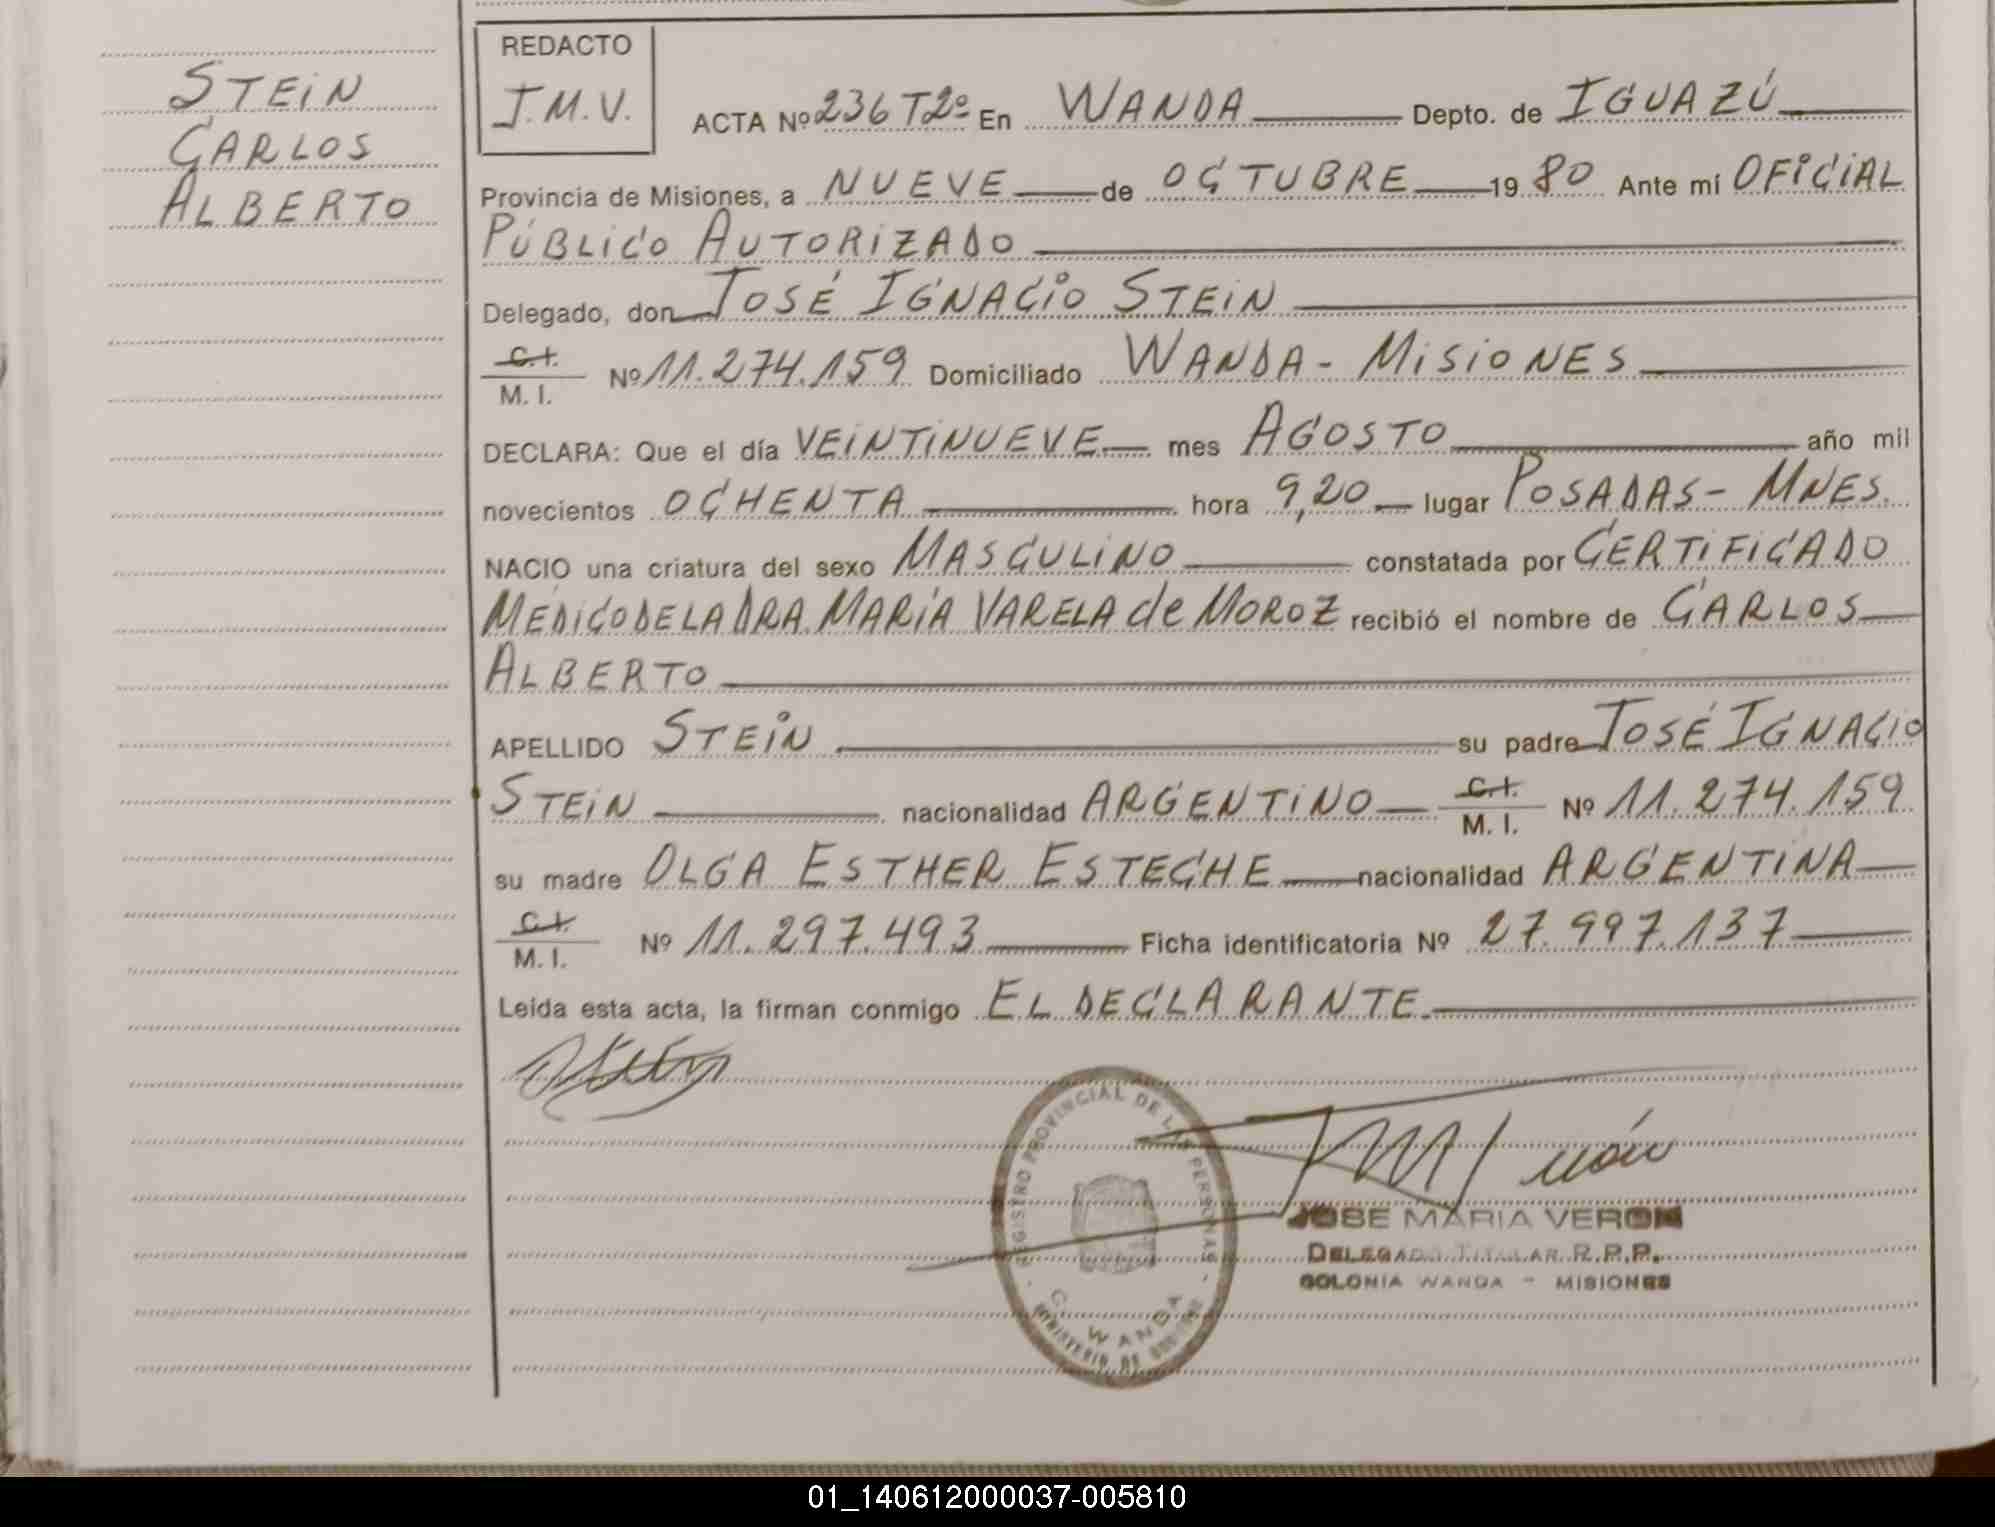 STEIN
CARLOS
ALBERTO
REDACTO
J.M.V.
ACTA Nº 236 T2º En WANDA Depto. de IGUAZÚ
Provincia de Misiones, a NUEVE de OCTUBRE 19 80 Ante mí OFICIAL
PÚBLICO AUTORIZADO
Delegado, don JOSÉ IGNACIO STEIN
C.I.
M. I. Nº 11.274.159 Domiciliado WANDA - MISIONES
DECLARA: Que el día VEINTINUEVE mes AGOSTO año mil
novecientos OCHENTA hora 9,20 lugar POSADAS - MNES.
NACIO una criatura del sexo MASCULINO constatada por CERTIFICADO
MÉDICO DE LA DRA. MARÍA VARELA de MOROZ recibió el nombre de CARLOS
ALBERTO
APELLIDO STEIN su padre JOSÉ IGNACIO
STEIN nacionalidad ARGENTINO C.I. M. I. Nº 11.274.159
su madre OLGA ESTHER ESTECHE nacionalidad ARGENTINA
C.I.
M. I. Nº 11.297.493 Ficha identificatoria Nº 27.997.137
Leida esta acta, la firman conmigo EL DECLARANTE.
REGISTRO PROVINCIAL DE LAS PERSONAS
C. WANDA
MINISTERIO DE
JOSE MARIA VERON
DELEGADO TITULAR R.P.P.
COLONIA WANDA - MISIONES
01_140612000037-005810